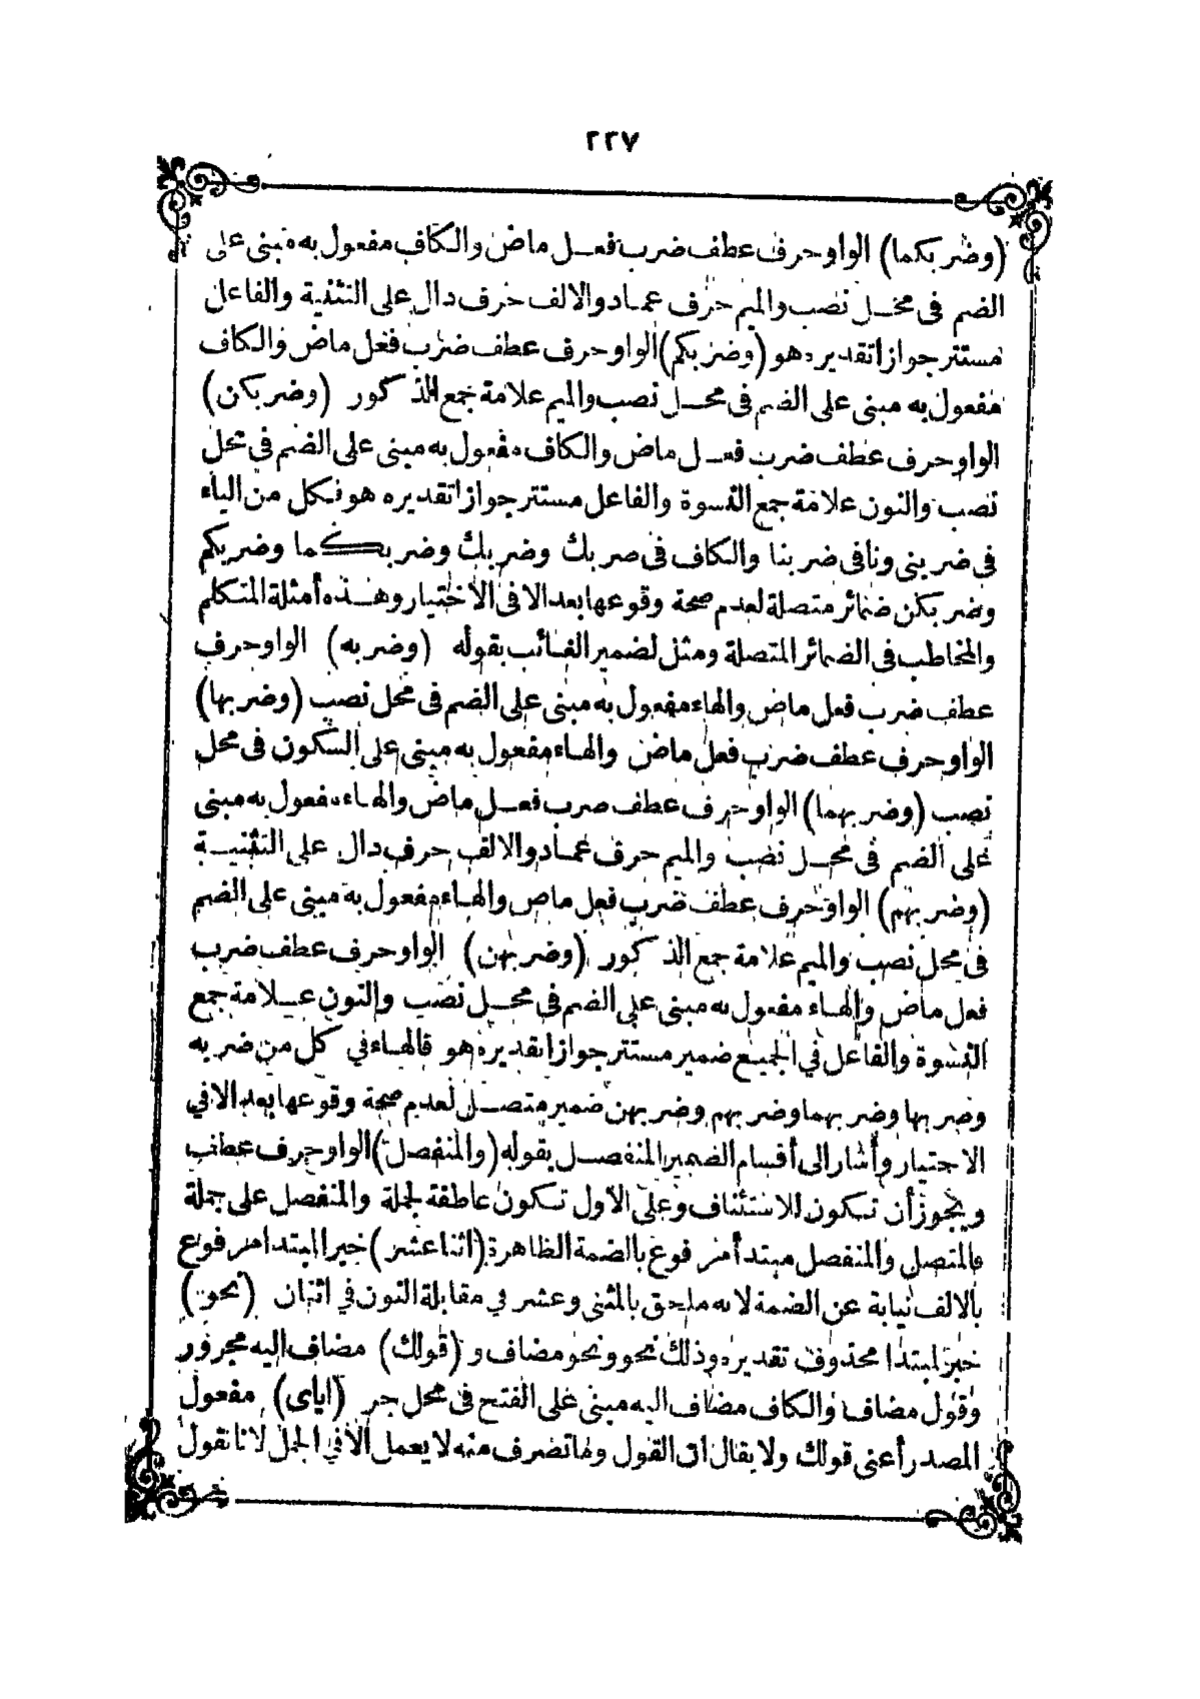 ٢٢٧
(وضربكما) الواو حرف عطف ضرب فعل ماض والكاف مفعول به مبنى على
الضم فى محل نصب والميم حرف عماد والالف حرف دال على التثنية والفاعل
مستتر جوازا تقديره هو (وضربكم) الواو حرف عطف ضرب فعل ماض والكاف
مفعول به مبنى على الضم فى محل نصب والميم علامة جمع الذكور (وضربكن)
الواو حرف عطف ضرب فعل ماض والكاف مفعول به مبنى على الضم فى محل
نصب والنون علامة جمع النسوة والفاعل مستتر جوازا تقديره هو فكل من الياء
فى ضربنى ونا فى ضربنا والكاف فى ضربك وضربك وضربكما وضربكم
وضربكن ضمائر متصلة لعدم صحة وقوعها بعد الا فى الاختيار وهذه أمثلة المتكلم
والمخاطب فى الضمائر المتصلة ومثل لضمير الغائب بقوله (وضربه) الواو حرف
عطف ضرب فعل ماض والهاء مفعول به مبنى على الضم فى محل نصب (وضربها)
الواو حرف عطف ضرب فعل ماض والهاء مفعول به مبنى على السكون فى محل
نصب (وضربهما) الواو حرف عطف ضرب فعل ماض والهاء مفعول به مبنى
على الضم فى محل نصب والميم حرف عماد والالف حرف دال على التثنية
(وضربهم) الواو حرف عطف ضرب فعل ماض والهاء مفعول به مبنى على الضم
فى محل نصب والميم علامة جمع الذكور (وضربهن) الواو حرف عطف ضرب
فعل ماض والهاء مفعول به مبنى على الضم فى محل نصب والنون علامة جمع
النسوة والفاعل في الجميع ضمير مستتر جوازا تقديره هو فالهاء في كل من ضربه
وضربها وضربهما وضربهم وضربهن ضمير متصل لعدم صحة وقوعها بعد الا في
الاختيار وأشار الى أقسام الضمير المنفصل بقوله (والمنفصل) الواو حرف عطف
ويجوز أن تكون للاستئناف وعلى الأول تكون عاطفة لجملة والمنفصل على جملة
فالمتصل والمنفصل مبتدأ مرفوع بالضمة الظاهرة (اثنا عشر) خبر المبتدا مرفوع
بالالف نيابة عن الضمة لانه ملحق بالمثنى وعشر في مقابلة النون في اثنان (نحو)
خبر لمبتدا محذوف تقديره وذلك نحو ونحو مضاف و (قولك) مضاف اليه مجرور
وقول مضاف والكاف مضاف اليه مبنى على الفتح فى محل جر (اياى) مفعول
المصدر أعنى قولك ولا يقال ان القول وما تصرف منه لا يعمل الا في الجمل لانا نقول